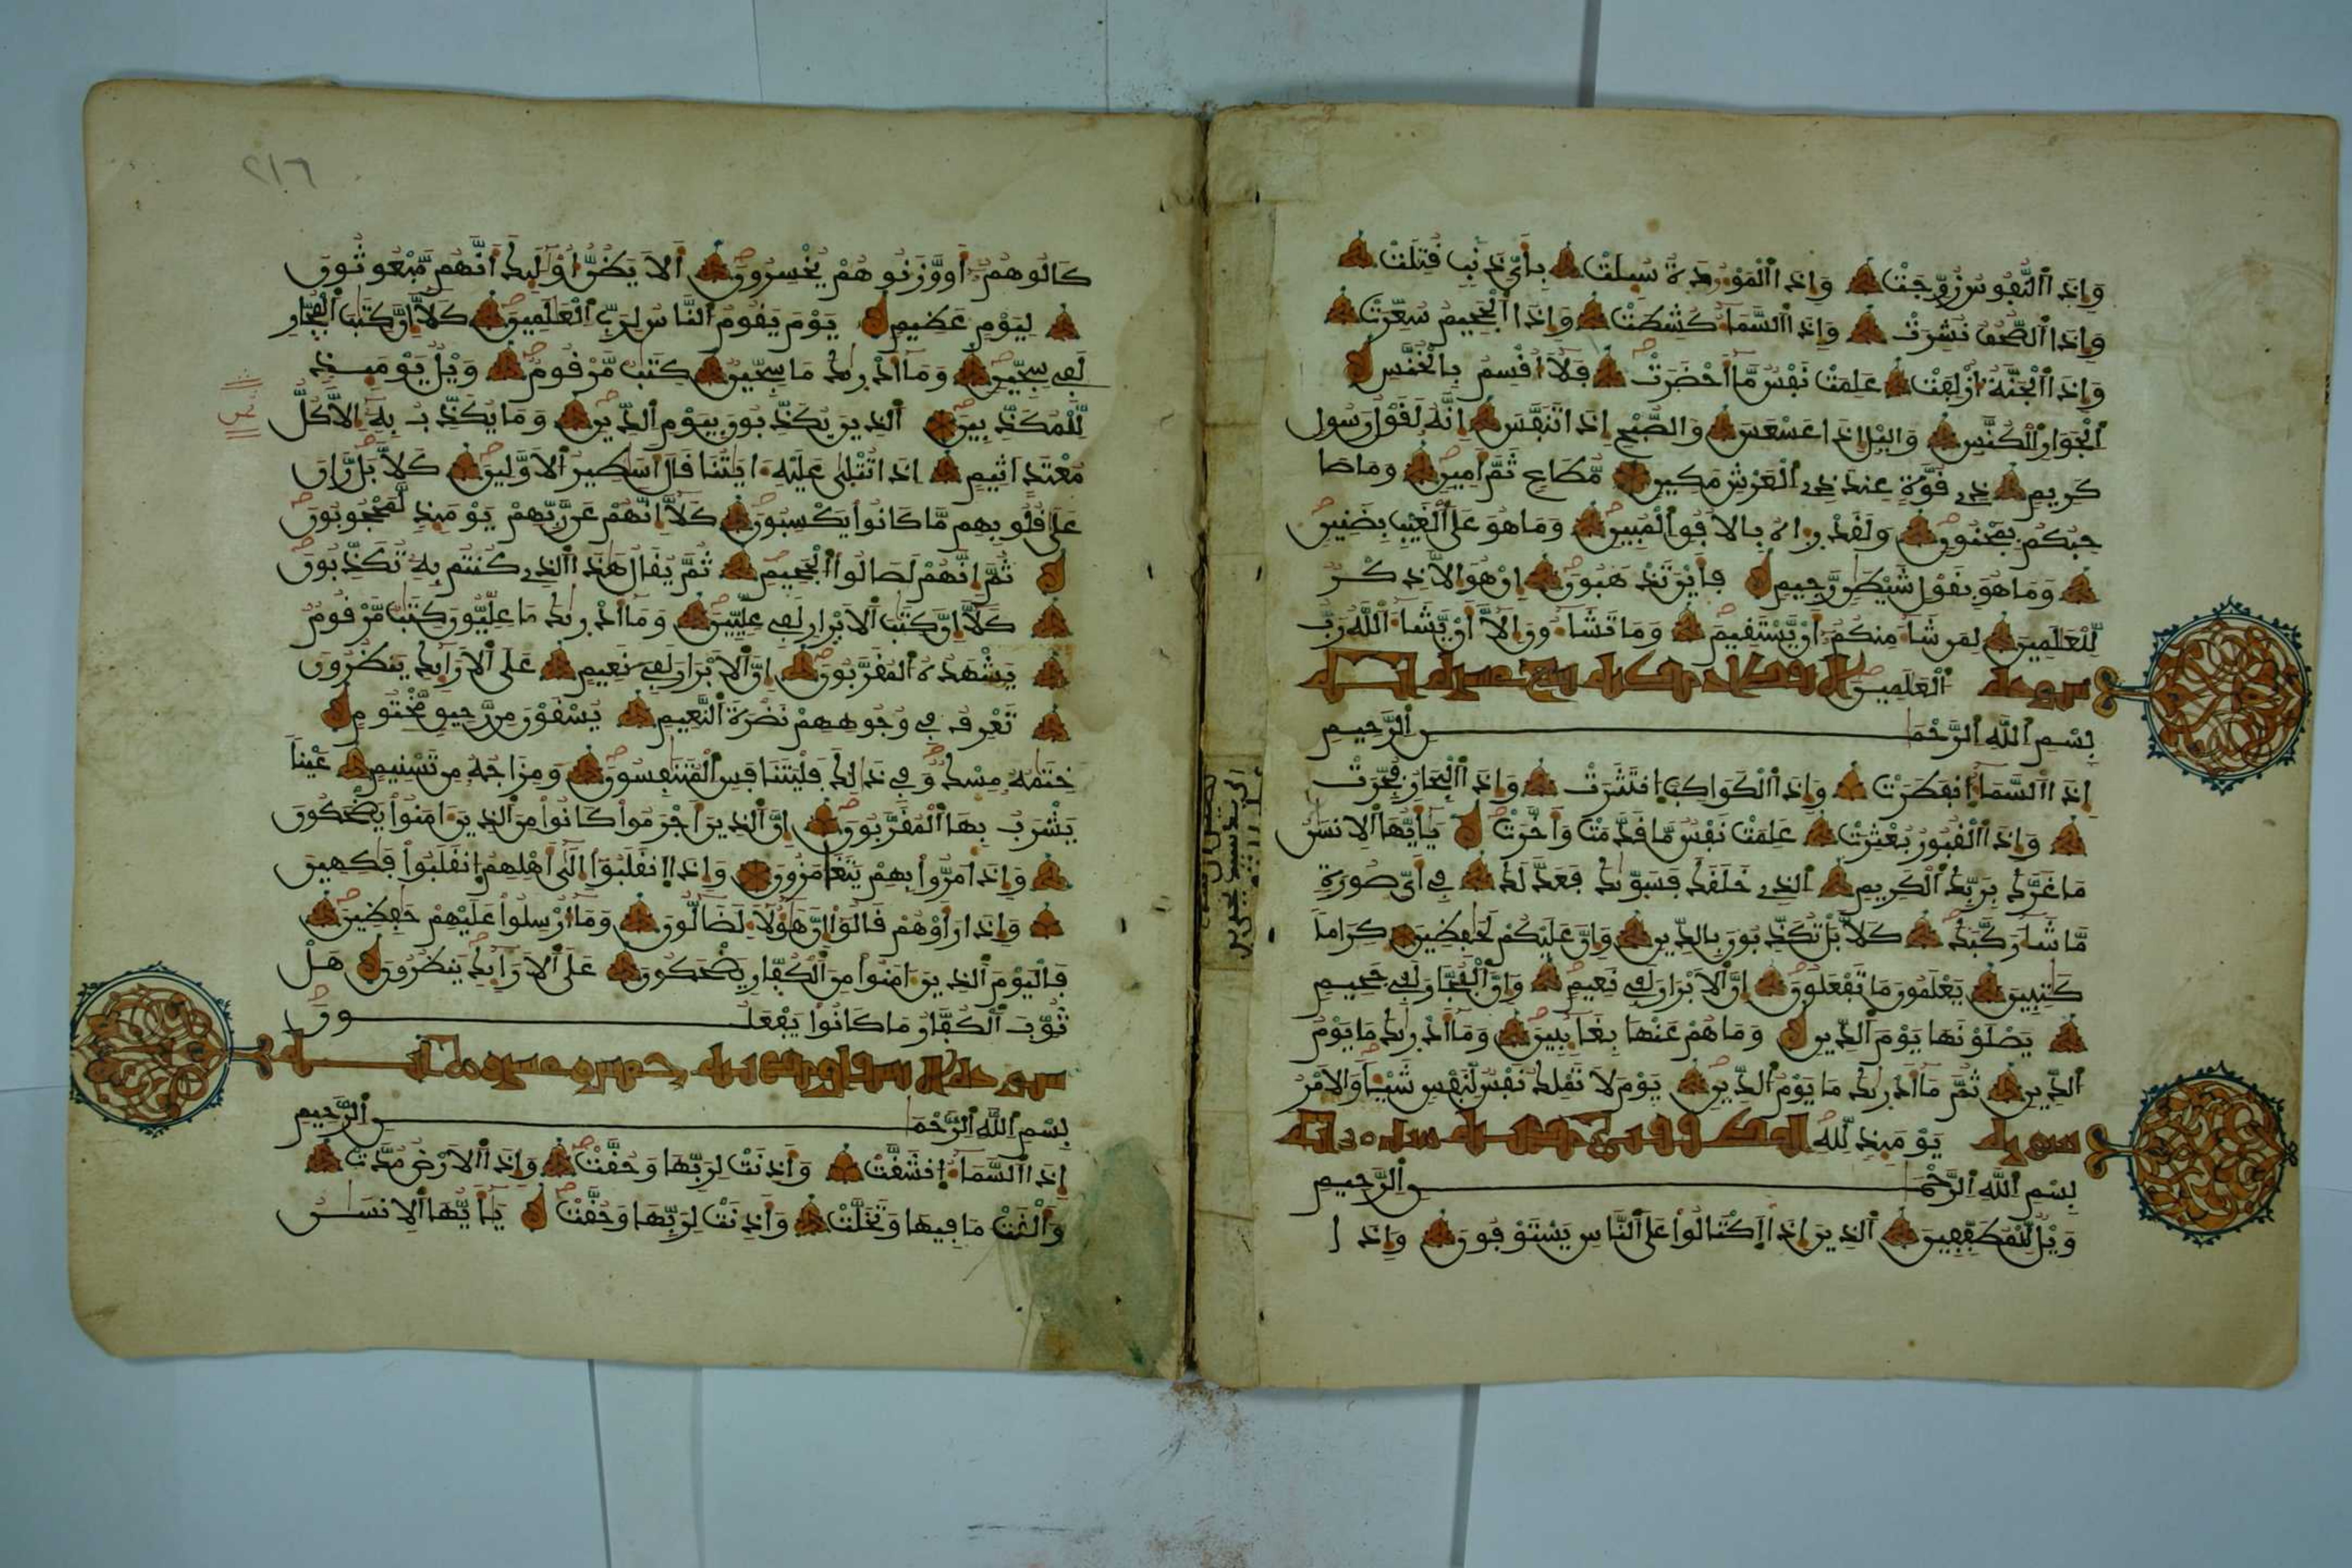 وَإِذَا ٱلنُّفُوسُ زُوِّجَتْ وَإِذَا ٱلْمَوْءُدَةُ سُئِلَتْ بِأَيِّ ذَنۢبٍ قُتِلَتْ
وَإِذَا ٱلصُّحُفُ نُشِرَتْ وَإِذَا ٱلسَّمَآءُ كُشِطَتْ وَإِذَا ٱلْجَحِيمُ سُعِّرَتْ
وَإِذَا ٱلْجَنَّةُ أُزْلِفَتْ عَلِمَتْ نَفْسٌ مَّآ أَحْضَرَتْ فَلَآ أُقْسِمُ بِالْخُنَّسِ
ٱلْجَوَارِ ٱلْكُنَّسِ وَاليْلِ إِذَا عَسْعَسَ وَالصُّبْحِ إِذَا تَنَفَّسَ إِنَّهُ لَقَوْلُ رَسُولٍ
كَرِيمٍ ذِي قُوَّةٍ عِندَ ذِي ٱلْعَرْشِ مَكِينٍ مُّطَاعٍ ثَمَّ أَمِينٍ وَمَا صَا
حِبُكُم بِمَجْنُونٍ وَلَقَدْ رَءَاهُ بِالْأُفُقِ ٱلْمُبِينِ وَمَا هُوَ عَلَى ٱلْغَيْبِ بِضَنِينٍ
وَمَا هُوَ بِقَوْلِ شَيْطَٰنٍ رَّجِيمٍ فَأَيْنَ تَذْهَبُونَ إِنْ هُوَ إِلَّا ذِكْرٌ
لِّلْعَٰلَمِينَ لِمَن شَآءَ مِنكُمُ أَنْ يَّسْتَقِيمَ وَمَا تَشَآءُونَ إِلَّآ أَنْ يَّشَآءَ ٱللَّهُ رَبُّ
ٱلْعَٰلَمِينَ سورة
بِسْمِ ٱللَّهِ ٱلرَّحْمَٰنِ ٱلرَّحِيمِ
إِذَا ٱلسَّمَآءُ ٱنفَطَرَتْ وَإِذَا ٱلْكَوَاكِبُ ٱنتَثَرَتْ وَإِذَا ٱلْبِحَارُ فُجِّرَتْ
وَإِذَا ٱلْقُبُورُ بُعْثِرَتْ عَلِمَتْ نَفْسٌ مَّا قَدَّمَتْ وَأَخَّرَتْ يَٰٓأَيُّهَا ٱلْإِنسَٰنُ
مَا غَرَّكَ بِرَبِّكَ ٱلْكَرِيمِ ٱلذِي خَلَقَكَ فَسَوَّىٰكَ فَعَدَّلَكَ فِي أَيِّ صُورَةٍ
مَّا شَآءَ رَكَّبَكَ كَلَّا بَلْ تُكَذِّبُونَ بِالدِّينِ وَإِنَّ عَلَيْكُمْ لَحَٰفِظِينَ كِرَاماً
كَٰتِبِينَ يَعْلَمُونَ مَا تَفْعَلُونَ إِنَّ ٱلْأَبْرَارَ لَفِي نَعِيمٍ وَإِنَّ ٱلْفُجَّارَ لَفِي جَحِيمٍ
يَصْلَوْنَهَا يَوْمَ ٱلدِّينِ وَمَا هُمْ عَنْهَا بِغَآئِبِينَ وَمَآ أَدْرَىٰكَ مَا يَوْمُ
ٱلدِّينِ ثُمَّ مَآ أَدْرَىٰكَ مَا يَوْمُ ٱلدِّينِ يَوْمَ لَا تَمْلِكُ نَفْسٌ لِّنَفْسٍ شَيْـٔاً وَالْأَمْرُ
يَوْمَئِذٍ لِّلَّهِ سورة
بِسْمِ ٱللَّهِ ٱلرَّحْمَٰنِ ٱلرَّحِيمِ
وَيْلٌ لِّلْمُطَفِّفِينَ ٱلذِينَ إِذَا ٱكْتَالُوا۟ عَلَى ٱلنَّاسِ يَسْتَوْفُونَ وَإِذَا
٢١٦
كَالُوهُمُ أَو وَّزَنُوهُمْ يُخْسِرُونَ أَلَا يَظُنُّ أُو۟لَٰٓئِكَ أَنَّهُم مَّبْعُوثُونَ
لِيَوْمٍ عَظِيمٍ يَوْمَ يَقُومُ ٱلنَّاسُ لِرَبِّ ٱلْعَٰلَمِينَ كَلَّآ إِنَّ كِتَٰبَ ٱلْفُجَّارِ
لَفِي سِجِّينٍ وَمَآ أَدْرَىٰكَ مَا سِجِّينٌ كِتَٰبٌ مَّرْقُومٌ وَيْلٌ يَوْمَئِذٍ
لِّلْمُكَذِّبِينَ ٱلذِينَ يُكَذِّبُونَ بِيَوْمِ ٱلدِّينِ وَمَا يُكَذِّبُ بِهِۦٓ إِلَّا كُلُّ
مُعْتَدٍ أَثِيمٍ إِذَا تُتْلَىٰ عَلَيْهِ ءَايَٰتُنَا قَالَ أَسَٰطِيرُ ٱلْأَوَّلِينَ كَلَّا بَل رَّانَ
عَلَىٰ قُلُوبِهِم مَّا كَانُوا۟ يَكْسِبُونَ كَلَّآ إِنَّهُمْ عَن رَّبِّهِمْ يَوْمَئِذٍ لَّمَحْجُوبُونَ
ثُمَّ إِنَّهُمْ لَصَالُوا۟ ٱلْجَحِيمِ ثُمَّ يُقَالُ هَٰذَا ٱلذِي كُنتُم بِهِۦ تُكَذِّبُونَ
كَلَّآ إِنَّ كِتَٰبَ ٱلْأَبْرَارِ لَفِي عِلِّيِّينَ وَمَآ أَدْرَىٰكَ مَا عِلِّيُّونَ كِتَٰبٌ مَّرْقُومٌ
يَشْهَدُهُ ٱلْمُقَرَّبُونَ إِنَّ ٱلْأَبْرَارَ لَفِي نَعِيمٍ عَلَى ٱلْأَرَآئِكِ يَنظُرُونَ
تَعْرِفُ فِي وُجُوهِهِمْ نَضْرَةَ ٱلنَّعِيمِ يُسْقَوْنَ مِن رَّحِيقٍ مَّخْتُومٍ
خِتَٰمُهُۥ مِسْكٌ وَفِي ذَٰلِكَ فَلْيَتَنَافَسِ ٱلْمُتَنَٰفِسُونَ وَمِزَاجُهُۥ مِن تَسْنِيمٍ عَيْناً
يَشْرَبُ بِهَا ٱلْمُقَرَّبُونَ إِنَّ ٱلذِينَ أَجْرَمُوا۟ كَانُوا۟ مِنَ ٱلذِينَ ءَامَنُوا۟ يَضْحَكُونَ
وَإِذَا مَرُّوا۟ بِهِمْ يَتَغَامَزُونَ وَإِذَا ٱنقَلَبُوٓا۟ إِلَىٰٓ أَهْلِهِمُ ٱنقَلَبُوا۟ فَٰكِهِينَ
وَإِذَا رَأَوْهُمْ قَالُوٓا۟ إِنَّ هَٰٓؤُلَآءِ لَضَآلُّونَ وَمَآ أُرْسِلُوا۟ عَلَيْهِمْ حَٰفِظِينَ
فَالْيَوْمَ ٱلذِينَ ءَامَنُوا۟ مِنَ ٱلْكُفَّارِ يَضْحَكُونَ عَلَى ٱلْأَرَآئِكِ يَنظُرُونَ هَلْ
ثُوِّبَ ٱلْكُفَّارُ مَا كَانُوا۟ يَفْعَلُونَ
سورة
بِسْمِ ٱللَّهِ ٱلرَّحْمَٰنِ ٱلرَّحِيمِ
إِذَا ٱلسَّمَآءُ ٱنشَقَّتْ وَأَذِنَتْ لِرَبِّهَا وَحُقَّتْ وَإِذَا ٱلْأَرْضُ مُدَّتْ
وَأَلْقَتْ مَا فِيهَا وَتَخَلَّتْ وَأَذِنَتْ لِرَبِّهَا وَحُقَّتْ يَٰٓأَيُّهَا ٱلْإِنسَٰنُ